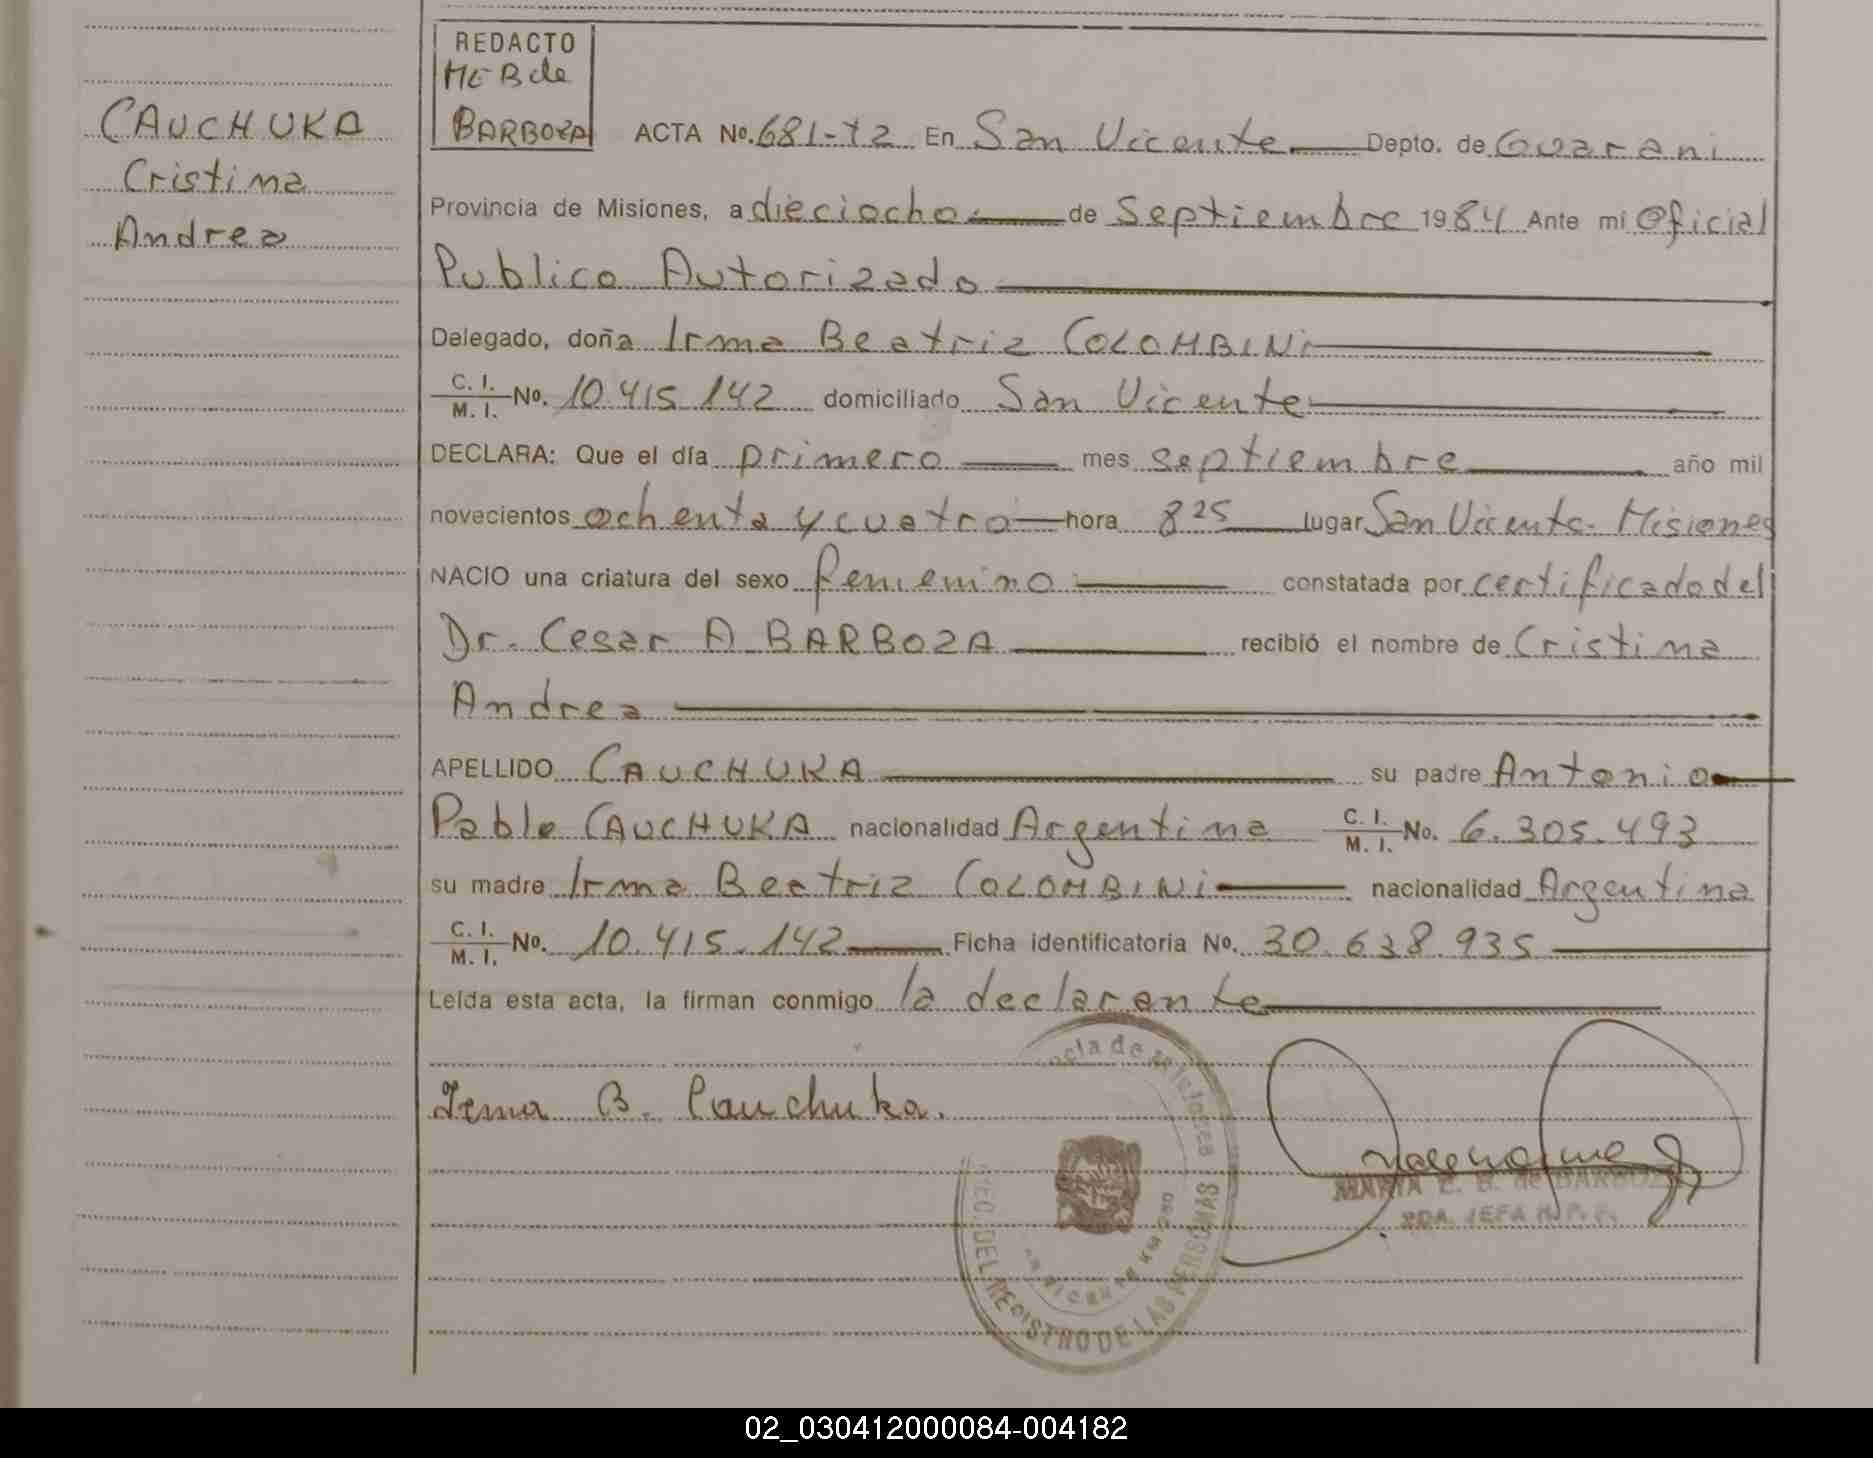 REDACTO
MEB de
BARBOZA
CAUCHUKA
Cristina
Andrea
ACTA No. 681-T2 En San Vicente Depto. de Guarani
Provincia de Misiones, a dieciocho de Septiembre 1984 Ante mí Oficial
Publico Autorizado
Delegado, doña Irma Beatriz COLOMBINI
C. I.
M. I. No. 10.415.142 domiciliado San Vicente
DECLARA: Que el día primero mes septiembre año mil
novecientos ochenta y cuatro hora 8 25 lugar San Vicente. Misiones
NACIO una criatura del sexo femenino constatada por certificado del
Dr. Cesar A BARBOZA recibió el nombre de Cristina
Andrea
APELLIDO CAUCHUKA su padre Antonio
Pablo CAUCHUKA nacionalidad Argentina C. I. M. I. No. 6.305.493
su madre Irma Beatriz COLOMBINI nacionalidad Argentina
C. I.
M. I. No. 10.415.142 Ficha identificatoria No. 30.638.935
Leída esta acta, la firman conmigo la declarante
Irma B. Cauchuka.
MARIA E. B. de BARBOZA
DEL REGISTRO DE LAS PERSONAS
02_030412000084-004182